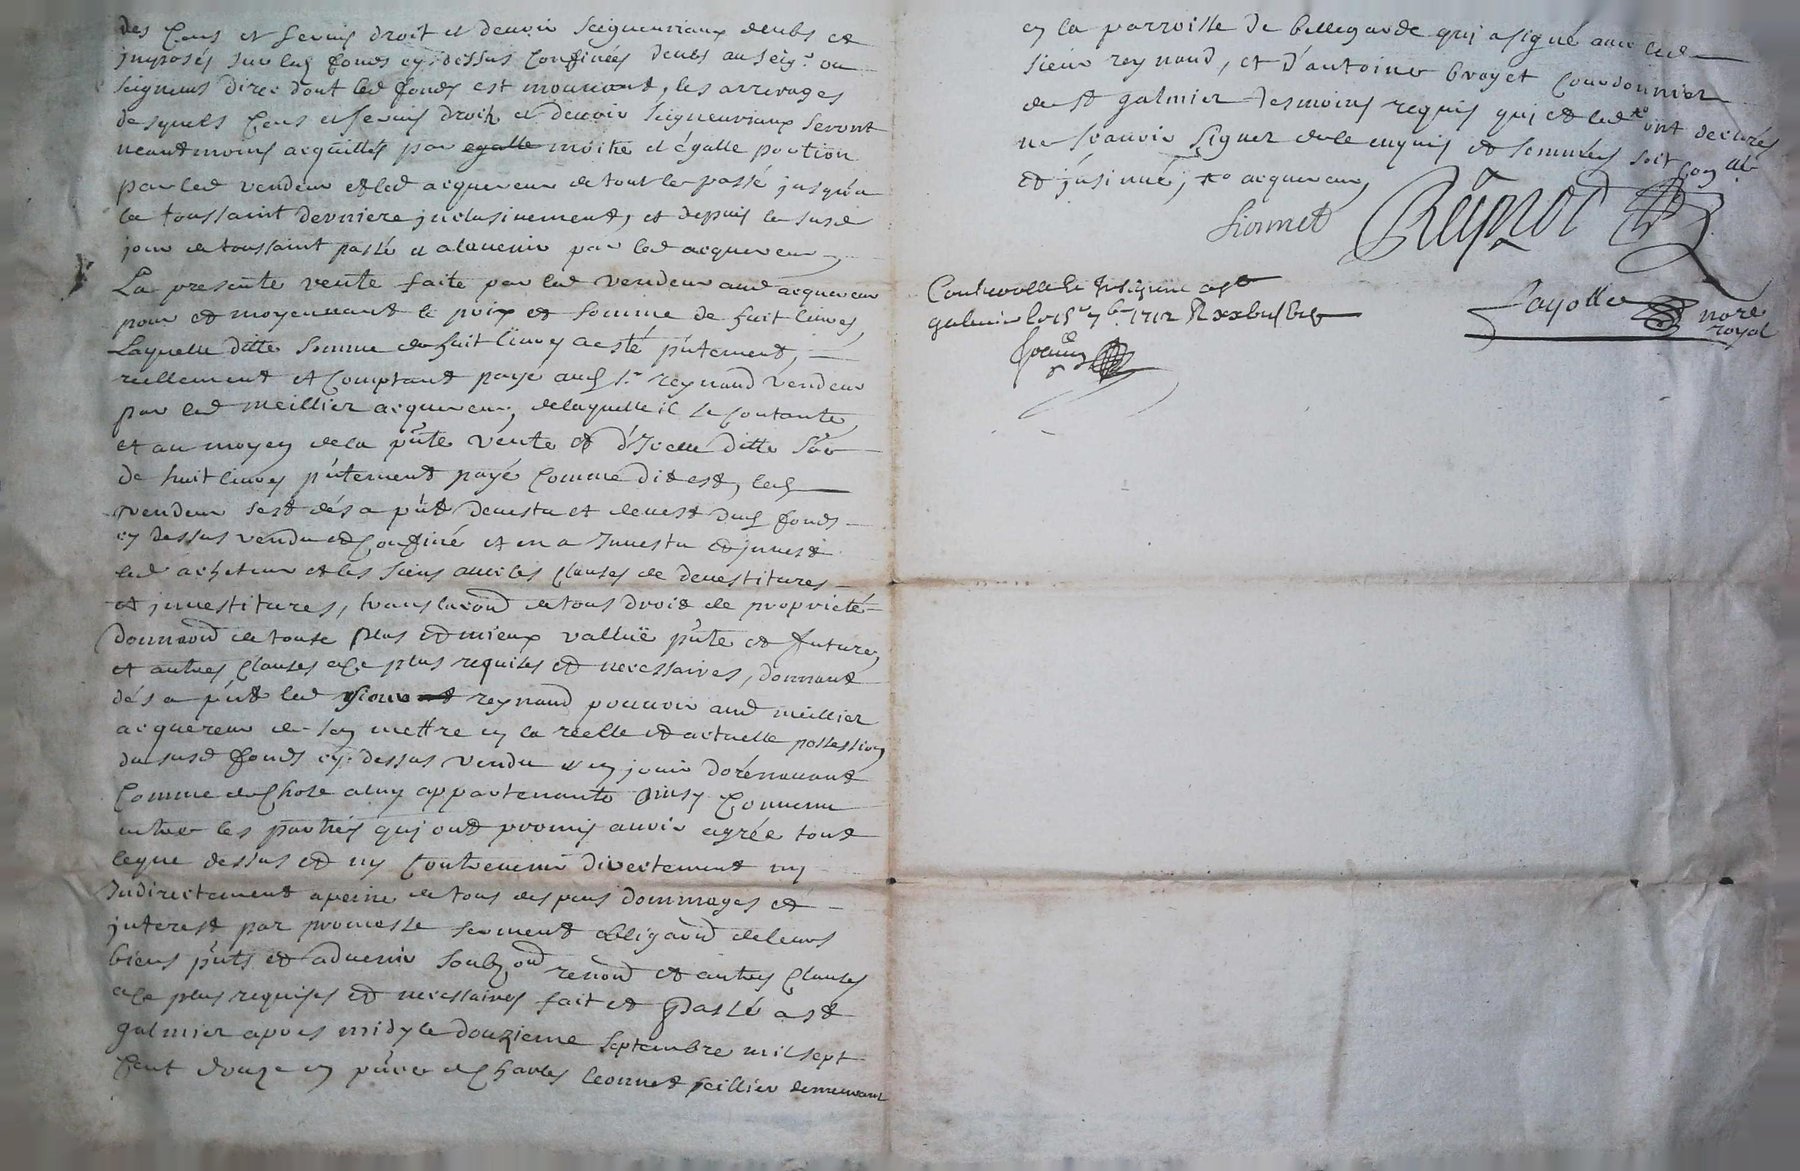 des Cens et servis droit et devoir seigneuriaux deubs et
jmposés sur led fonds cy dessus Confinés deubs au seigr ou
seigneurs direc dont led fonds est mouvant, les arrerages
desquels Cens et servis droit et devoir seigneuriaux seront
neantmoins acquittés par egalle moitié et égalle portion
par led vendeur et led acquereur de tout le passé jusqu'a
la toussaint derniere jnclusivement, et depuis le susd
jour de toussaint passé et a lavenir par led acquereur,
La presente vente faite par led vendeur aud acquereur
pour et moyennant le prix et somme de huit livres,
Laquelle ditte somme de huit livres a esté pntement,
reellement et Comptant payé aud sr reynaud vendeur
par led meillier acquereur, de laquelle il se contante,
et au moyen de la pnte vente et d'Icelle ditte so
de huit livres pntement payé Comme dit est, led
vendeur sest dés a pnt devestu et devest dud fonds
cy dessus vendu et Confiné et en a Jnvestu et jnvest
led acheteur et les siens avec les Clauses de devestitures
et jnvestitures, translaond de tous droit de proprieté
donnaond de toute plus et mieux vallüe pnte et future,
et autres Clauses a ce plus requises et necessaires, donnant
dés a pnt led sieur reynaud pouvoir aud meillier
acquereur de sen mettre en la réelle et actuelle possession
du susd fonds cy dessus vendu et en jouir dorénavant
Comme de Chose a luy appartenante Ainsy Convenu
entre les parties quj ont promis avoir agrée tout
ceque dessus et ny Contrevenir directement ny
Jndirectement a peine de tous despens dommages et
jnterest par promesse serment obligaond de leurs
biens pnts et advenir soubz ond renond et autres Clauses
a ce plus requises et necessaires fait et Passé a st
galmier apres midy le douzieme septembre mil sept
Cent douze en pnce de Charles leonnet seillier demeurant
en la parroisse de bellegarde quj a signé avec led
sieur reynaud, et d'antoine broyet Courdonnier
de st galmier tesmoins requis quj et led ont declarés
ne scavoir signer de ce enquis et sommés soit Con lle
et jnsinué, acquereur,
Lionnet Reynod
Controollé et Jnsinué a st
galmier le 15e 7bre 1712
Fayolle nore
royal